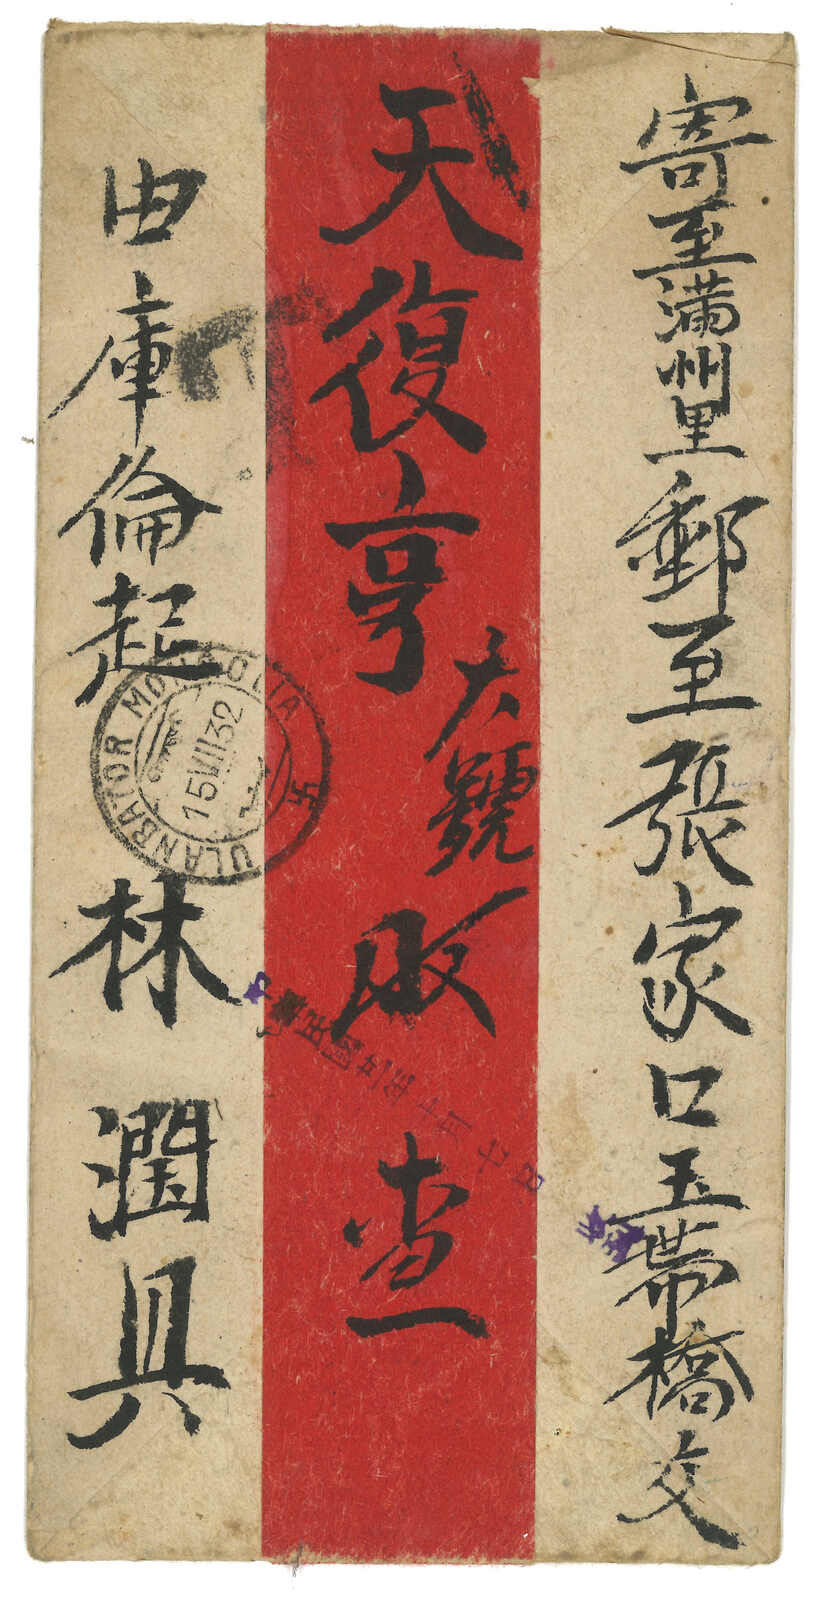 寄至滿州里郵至張家口玉帶橋交
天復亨大號收查
由庫倫起 林潤具
ULANBATOR MONGOLIA
15 VII 32